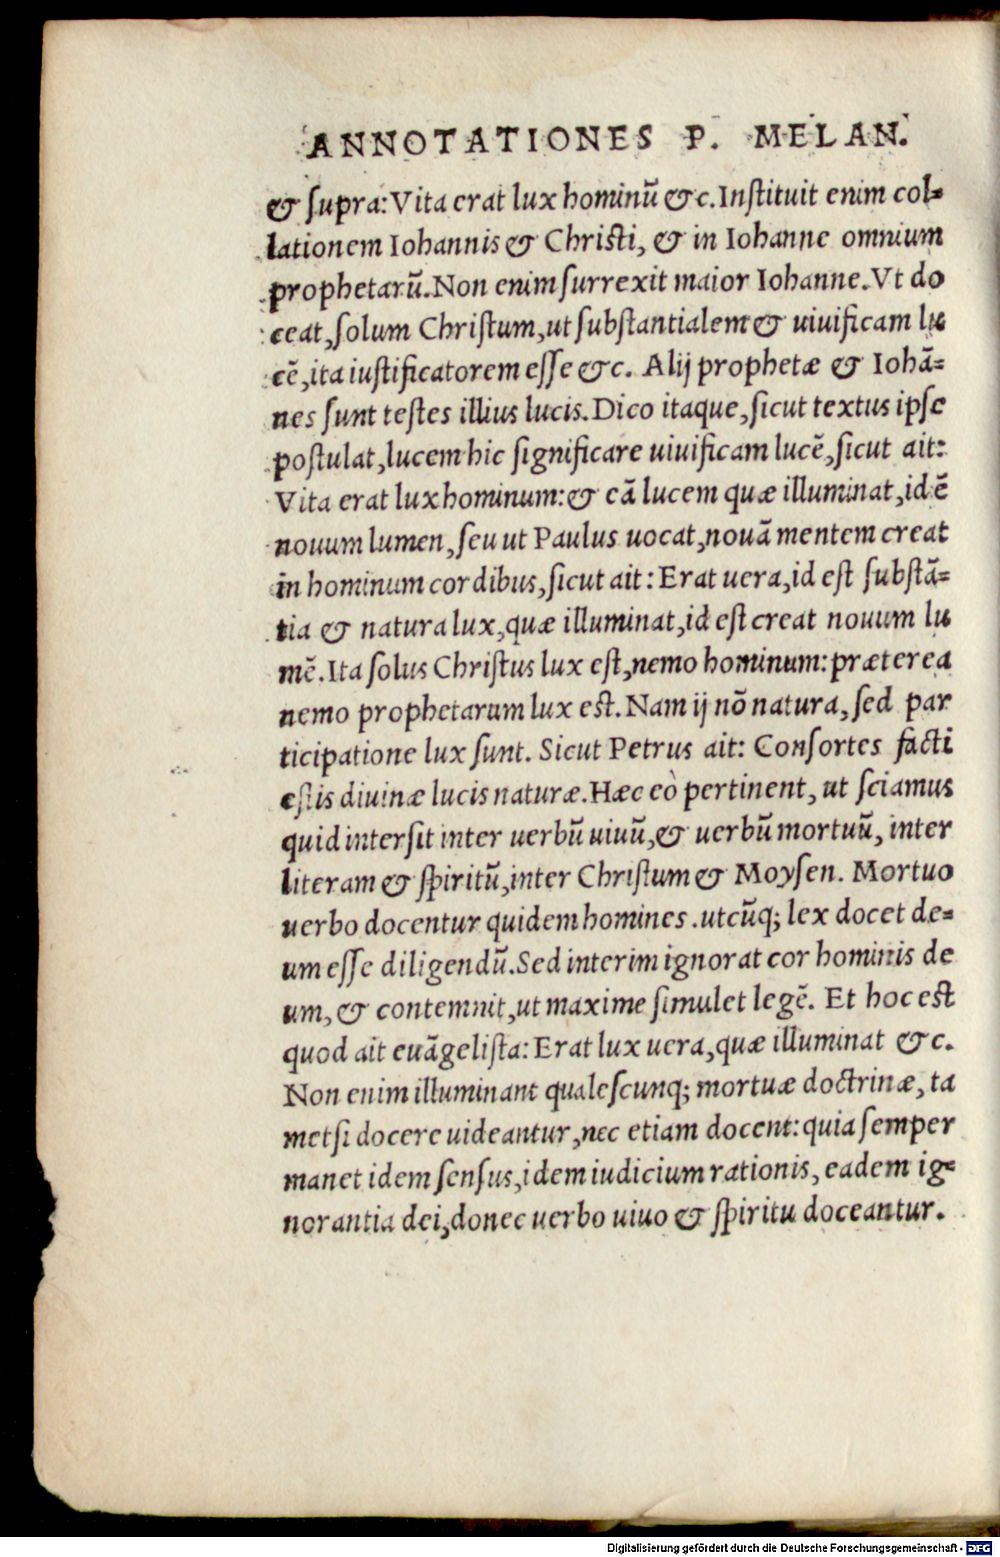 ANNOTATIONES P. MELAN.
& ſupra: Vita erat lux hominū &c. Inſtituit enim col-
lationem Iohannis & Chriſti, & in Iohanne omnium
prophetarū. Non enim ſurrexit maior Iohanne. Vt do
ceat, ſolum Chriſtum, ut ſubſtantialem & uiuificam lu
cē, ita iuſtificatorem eſſe &c. Alij prophetæ & Iohā-
nes ſunt teſtes illius lucis. Dico itaque, ſicut textus ipſe
poſtulat, lucem hic ſignificare uiuificam lucē, ſicut ait:
Vita erat lux hominum: & eā lucem quæ illuminat, id ē
nouum lumen, ſeu ut Paulus uocat, nouā mentem creat
in hominum cordibus, ſicut ait: Erat uera, id eſt ſubſtā-
tia & natura lux, quæ illuminat, id eſt creat nouum lu
mē. Ita ſolus Chriſtus lux eſt, nemo hominum: præterea
nemo prophetarum lux eſt. Nam ij nō natura, ſed par
ticipatione lux ſunt. Sicut Petrus ait: Conſortes facti
eſtis diuinæ lucis naturæ. Hæc eò pertinent, ut ſciamus
quid interſit inter uerbū uiuū, & uerbū mortuū, inter
literam & ſpiritū, inter Chriſtum & Moyſen. Mortuo
uerbo docentur quidem homines. utcūq; lex docet de-
um eſſe diligendū. Sed interim ignorat cor hominis de
um, & contemnit, ut maxime ſimulet legē. Et hoc eſt
quod ait euāgeliſta: Erat lux uera, quæ illuminat &c.
Non enim illuminant qualeſcunq; mortuæ doctrinæ, ta
metſi docere uideantur, nec etiam docent: quia ſemper
manet idem ſenſus, idem iudicium rationis, eadem ig-
norantia dei, donec uerbo uiuo & ſpiritu doceantur.
Digitalisierung gefördert durch die Deutsche Forschungsgemeinschaft - DFG